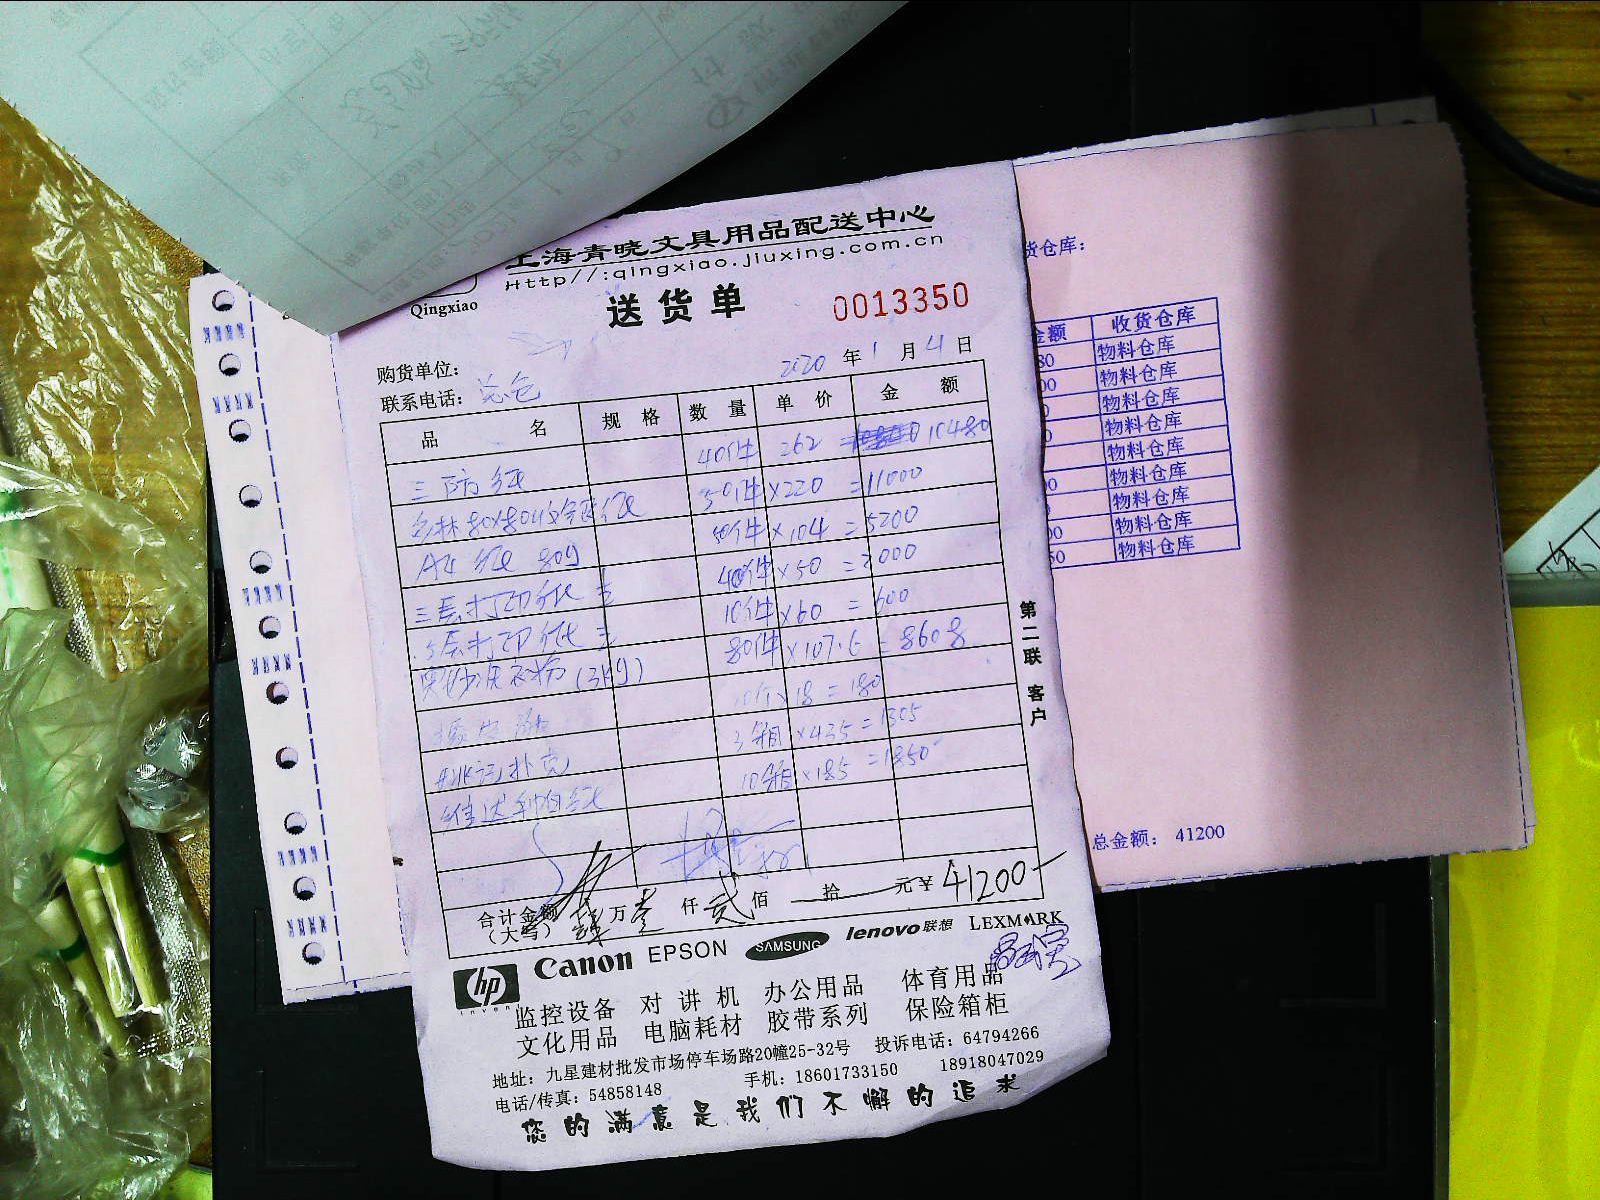 上海青晓文具用品配送中心
Http//:qingxiao.jiuxing.com.cn
Qingxiao
送货单 0013350
购货单位：
2020 年 1 月 4 日
联系电话： 总仓
品 名 规 格 数 量 单 价 金 额
三防纸 40件 262 10480
50件 ×220 =11000
A4纸 80g 50件 ×104 =5200
三层打印纸 40件 ×50 =2000
5层打印纸 10件 ×60 = 600
奥妙洗衣粉(3kg) 80件 ×107.6 = 8608
10个 ×18 = 180
扑克 3箱 ×435 =1305
维达 10箱 ×185 =1850
第二联 客户
合计金额（大写） 肆万壹仟贰佰 拾 元￥ 41200
hp invent Canon EPSON SAMSUNG lenovo联想 LEXMARK
监控设备 对讲机 办公用品 体育用品
文化用品 电脑耗材 胶带系列 保险箱柜
地址：九星建材批发市场停车场路20幢25-32号 投诉电话：64794266
电话/传真：54858148 手机：18601733150 18918047029
您的满意是我们不懈的追求
货仓库：
金额 收货仓库
80 物料仓库
00 物料仓库
0 物料仓库
0 物料仓库
物料仓库
00 物料仓库
物料仓库
00 物料仓库
50 物料仓库
总金额： 41200